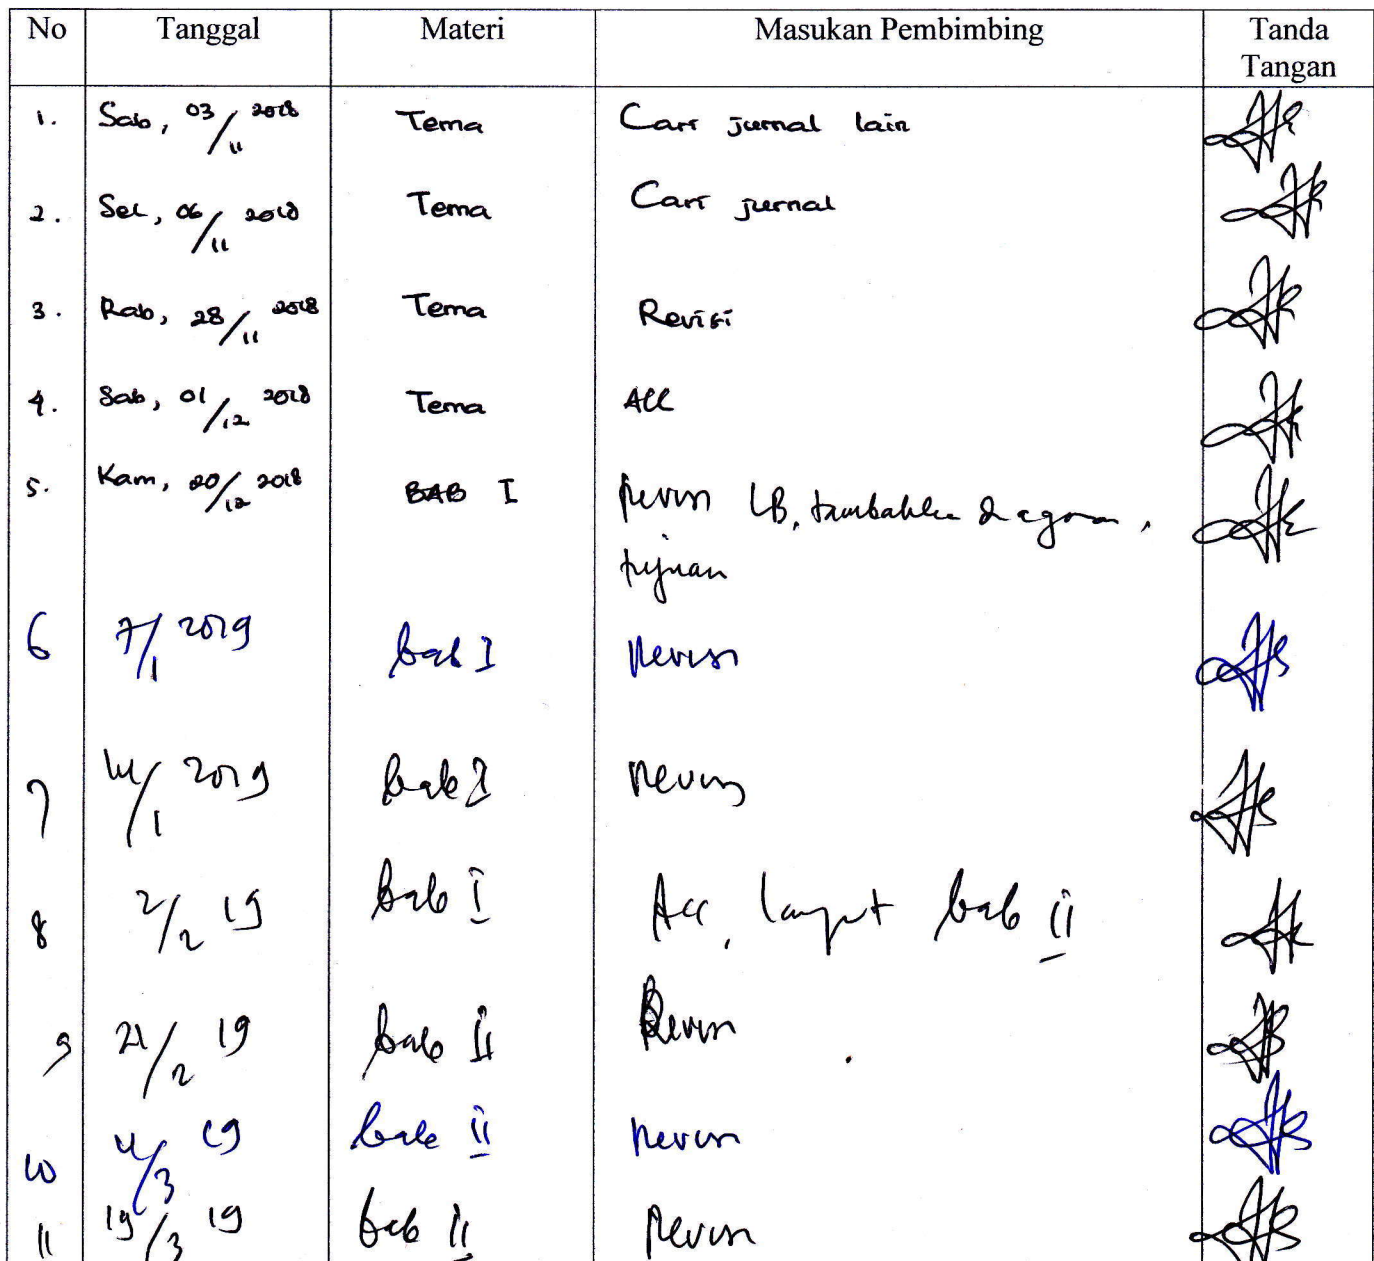 No Tanggal Materi Masukan Pembimbing Tanda Tangan
1. Sab, 03/11 2018 Tema Cari jurnal lain
2. Sel, 06/11 2018 Tema Cari jurnal
3. Rab, 28/11 2018 Tema Revisi
4. Sab, 01/12 2018 Tema ACC
5. Kam, 20/12 2018 BAB I revisi LB, tambahkan diagram,
tujuan
6 7/1 2019 bab I revisi
7 /1 2019 bab I revisi
8 2/2 19 bab I Acc, lanjut bab II
9 21/2 19 bab II Revisi
10 /3 19 bab II revisi
11 19/3 19 bab II revisi